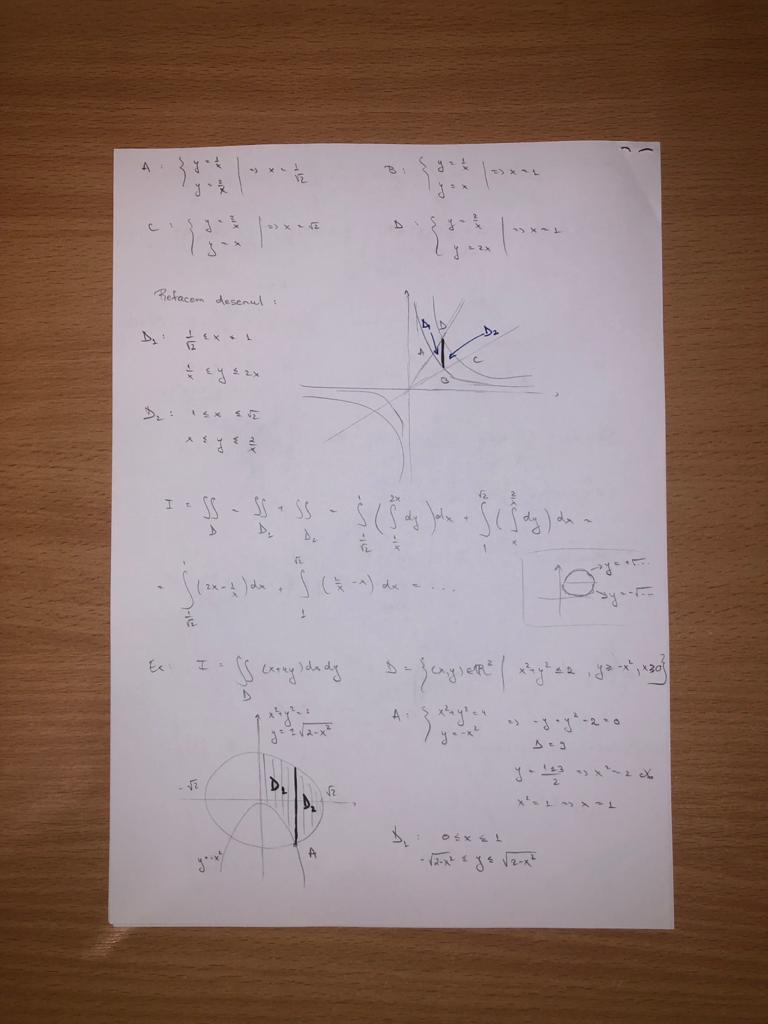 A: { y = 1/x | => x = 1/√2
y = 2x
B: { y = 1/x | => x = 1
y = x
C: { y = 2/x | => x = √2
y = x
D: { y = 2/x | => x = 1
y = 2x
Refacem desenul:
D₁: 1/√2 ≤ x ≤ 1
1/x ≤ y ≤ 2x
D₂: 1 ≤ x ≤ √2
x ≤ y ≤ 2/x
D₁ D D₂
A C
B
I = ∬_D = ∬_D₁ + ∬_D₂ = ∫_{1/√2}^{1} (∫_{1/x}^{2x} dy) dx + ∫_{1}^{√2} (∫_{x}^{2/x} dy) dx =
= ∫_{1/√2}^{1} (2x - 1/x) dx + ∫_{1}^{√2} (2/x - x) dx = ...
y = +√...
y = -√...
Ex: I = ∬_D (x+4y) dx dy D = {(x,y)∈ℝ² | x²+y² ≤ 2, y ≥ -x², x ≥ 0}
x²+y² = 2
y = ±√(2-x²)
-√2 D₁ D₂ √2
y = -x² A
A: { x²+y² = 4 => -y + y² - 2 = 0
y = -x²
Δ = 9
y = (1±3)/2 => x² = 2
x² = 1 => x = 1
D₁: 0 ≤ x ≤ 1
-√(2-x²) ≤ y ≤ √(2-x²)